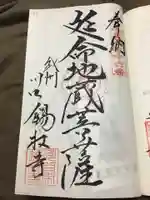 奉納
延命地蔵菩薩
武州
川口錫杖寺